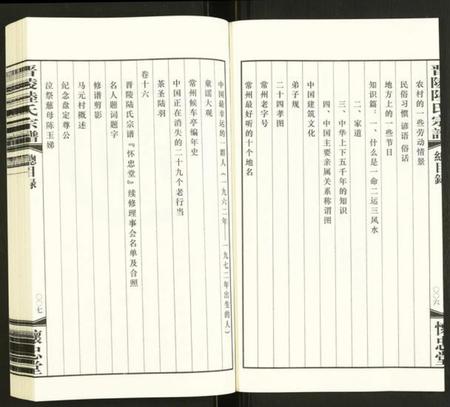 晋陵陆氏宗譜
總目録
〇〇六
懷忠堂
农村的一些劳动情景
民俗习惯 谚语俗话
地方上的一些节日
知识篇：一、什么是一命二运三风水
二、家道
三、中华上下五千年的知识
四、中国主要亲属关系称谓图
中国建筑文化
弟子规
二十四孝图
常州老字号
常州最好听的十个地名
中国最幸运的一群人（一九六二年——一九七二年出生的人）
童谣大观
常州候车亭编年史
中国正在消失的二十九个老行当
茶圣陆羽
卷十六
晋陵陆氏宗谱『怀忠堂』续修理事会名单及合照
名人题词题字
修谱剪影
马元村概述
纪念盘定尊公
泣祭慈母陈玉娣
晋陵陸氏宗譜
總目録
〇〇七
懷忠堂